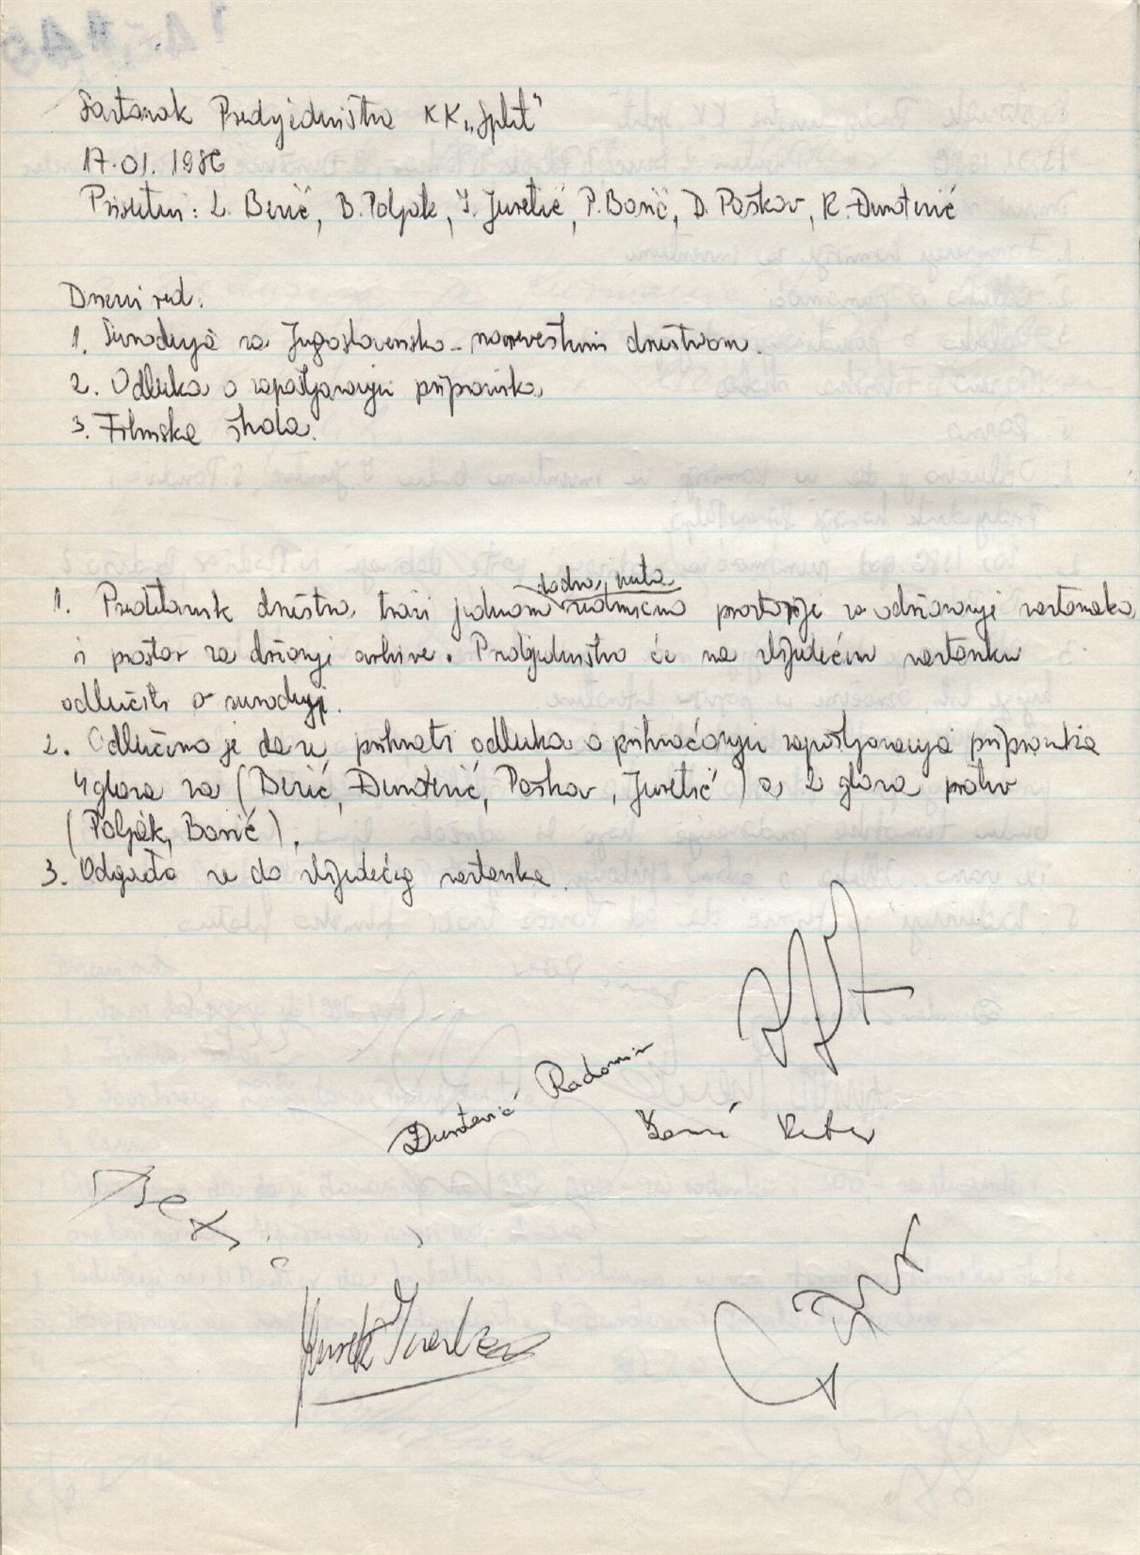 Sastanak Predsjedništva KK „Split"
17.01.1986
Prisutni: L. Berić, B. Poljak, I. Juretić, P. Borić, D. Poškov, R. Đurđević
Dnevni red:
1. Suradnja sa Jugoslavensko-norveškim društvom.
2. Odluka o zapošljavanju pripravnika
3. Filmska škola.
1. Predstavnik društva traži jednom prostorije za održavanje sastanaka
i prostor za držanje arhive. Predsjedništvo će na slijedećem sastanku
odlučiti o suradnji.
2. Odlučeno je da se prihvati odluka o prihvaćanju zapošljavanja pripravnika
4 glasa za (Berić, Đurđević, Poškov, Juretić) a 2 glasa protiv
(Poljak, Borić).
3. Odgađa se do slijedećeg sastanka.
Radomir